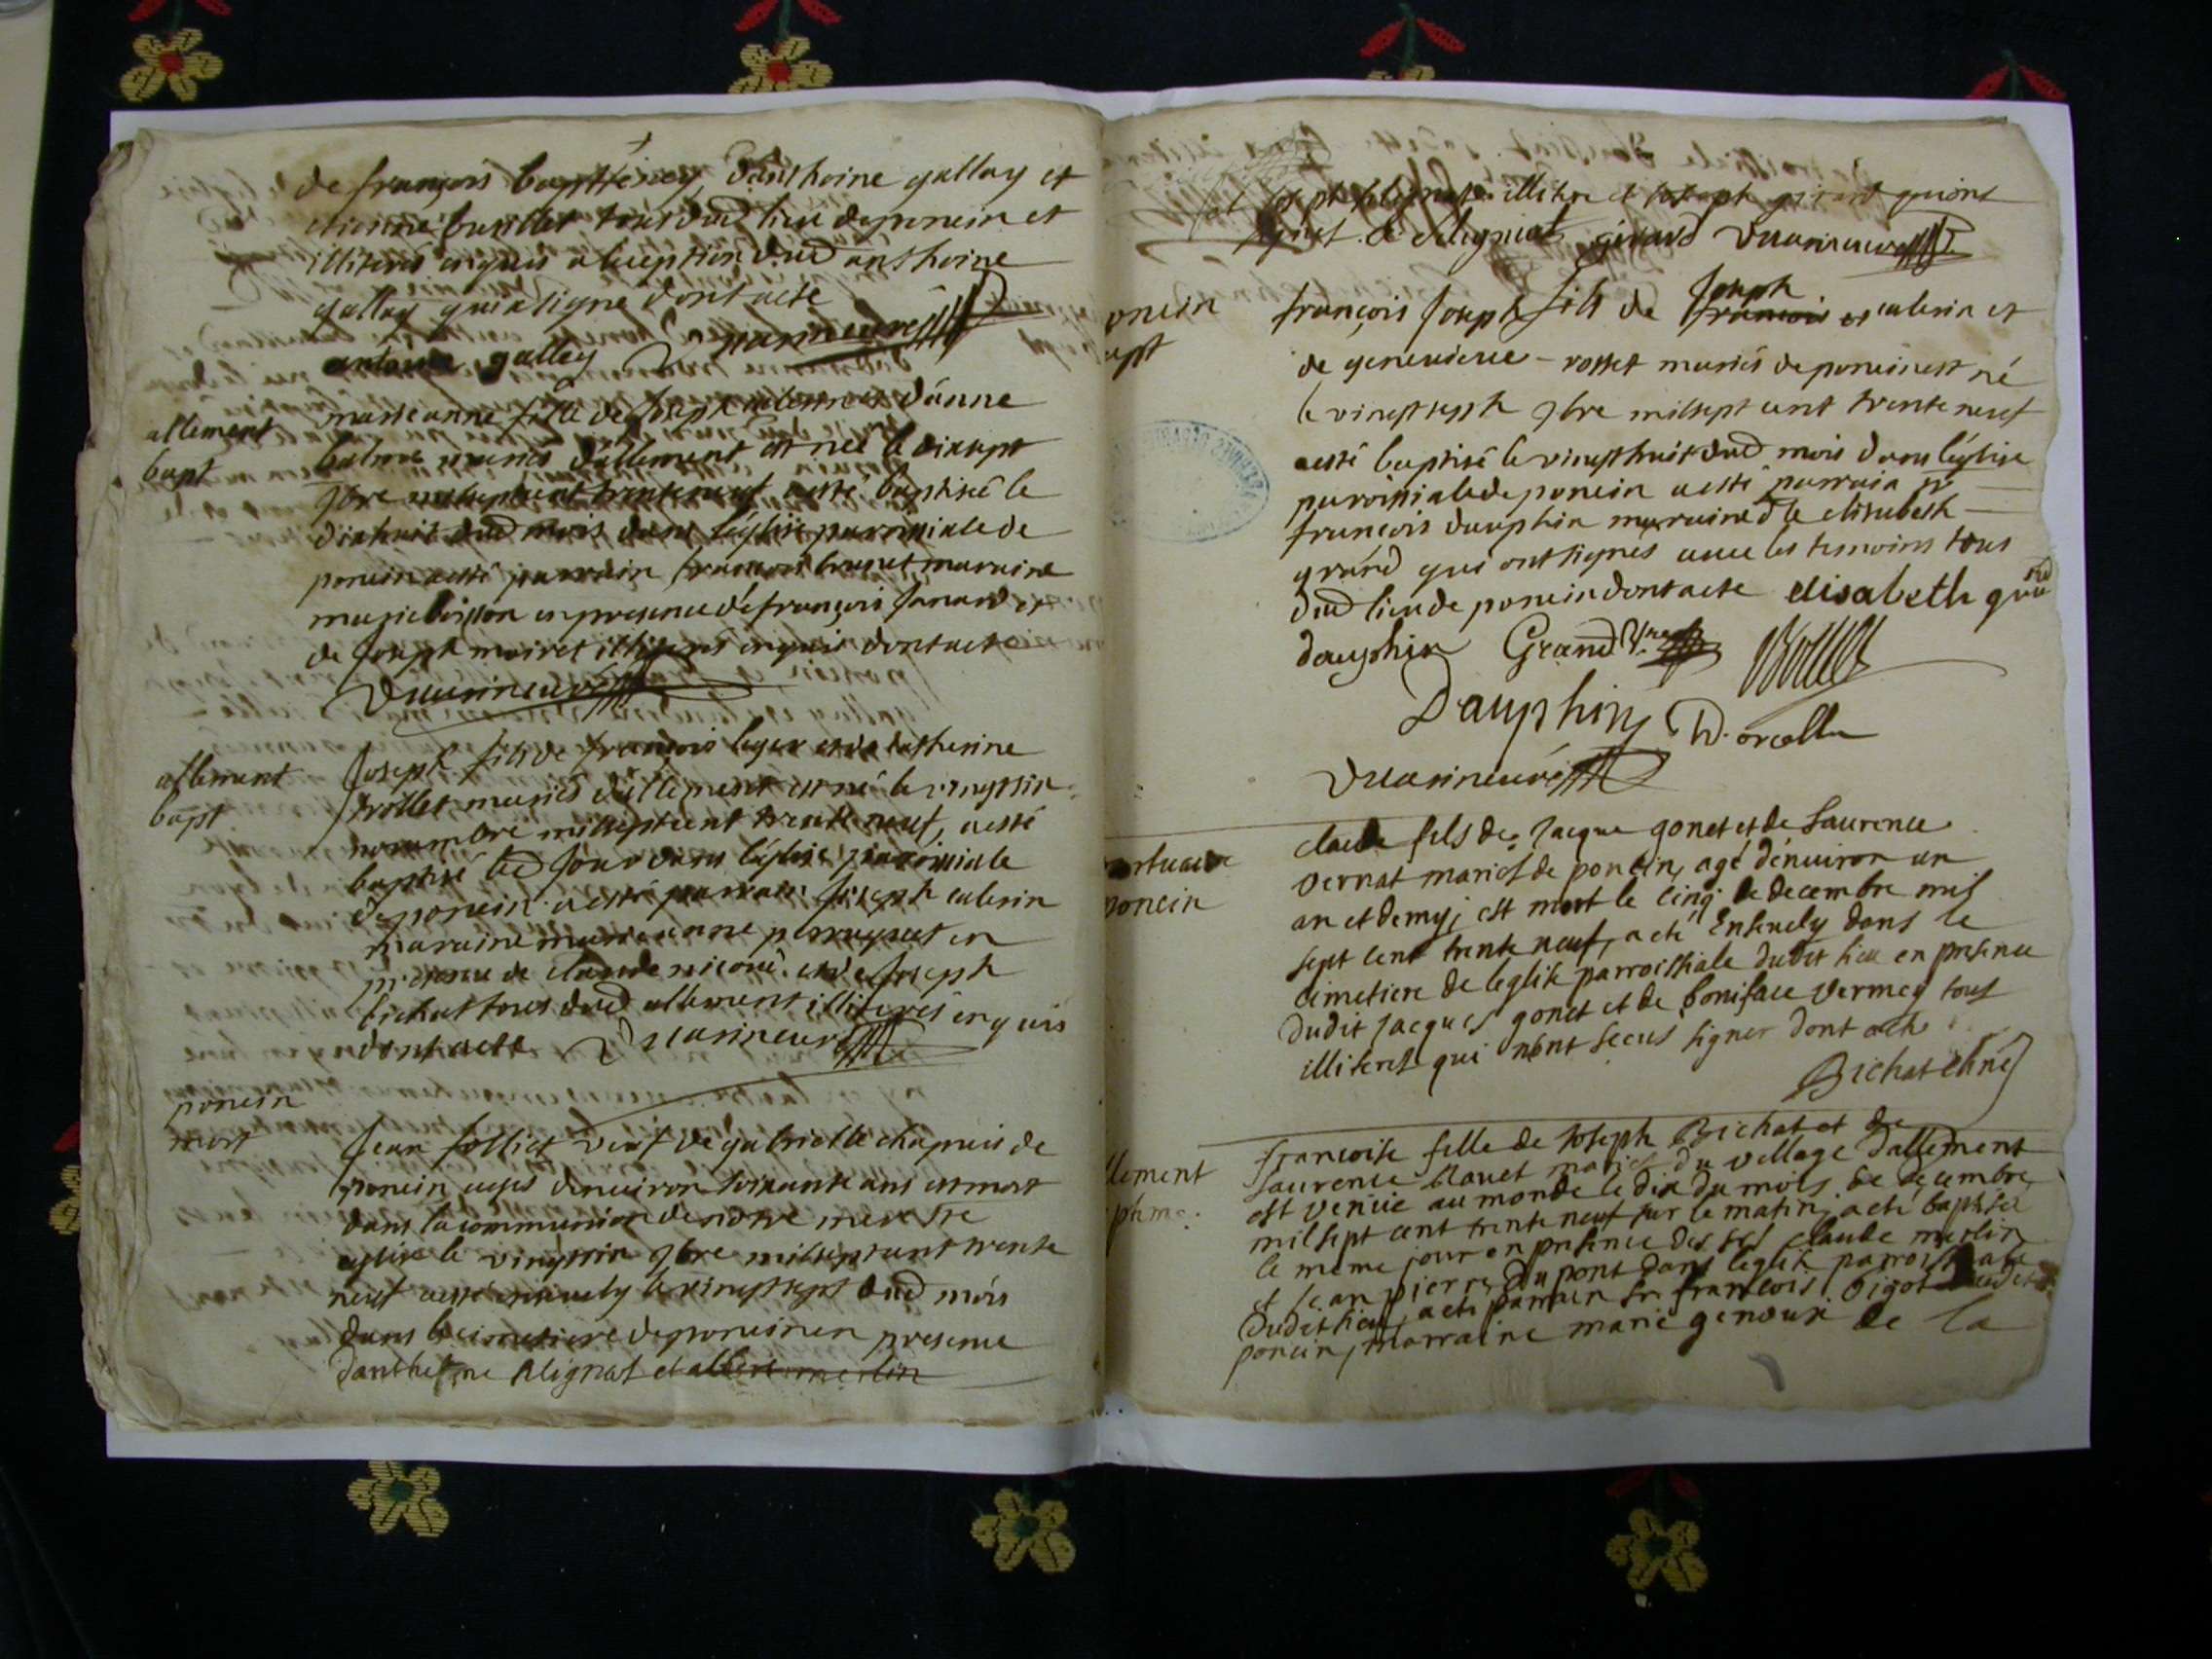 de françois Danthoine gallay et
etienne tous dud lieu de poncin et
illiterés enquis a lexeption dud anthoine
gallay qui a signé dont acte
galley
allement
bapt
marie anne fille de Joseph et d'anne
balme mariés d'allement est née le dixsept
9bre milsept cent trente neuf a esté baptisée le
dixhuit dud mois dans l'eglise parroissiale de
poncin a esté parrain françois brunet marraine
marie en presence de françois Janard et
de Joseph mairet illiterés enquis dont acte
allement
bapt
Joseph fils de françois leger et de catherine
trollet mariés d'allement est né le vingtsix
novembre milleseptcent trente neuf, a esté
baptisé led Jour dans l'église parroissiale
de poncin a esté parrain Joseph
marraine marie anne en
presence de claude et de Joseph
bichat tous dud allement illiterés enquis
dont acte
poncin
mort
Jean follict veuf de gabrielle chapuis de
poncin agés denviron soixante ans est mort
dans la communion de notre mere Ste
eglise le vingtsix 9bre milseptcent trente
neuf a esté ensevely le vingtsept dud mois
dans le cimetiere de poncin en presence
danthelme et albert merlin
et Joseph illitere et Joseph girard qui ont
signet girard
oncin
apt
françois Joseph fils de Joseph françois et et
de genevieve rosset mariés de poncin est né
le vingtsept 9bre milsept cent trente neuf
a esté baptisé le vingthuit dud mois dans l'église
parroissiale de poncin a esté parrain sr
françois dauphin marraine dlle elisabeth
grand qui ont signés avec les temoins tous
dud lieu de poncin dont acte elisabeth grand
dauphin Grand
Dauphin
ortuaire
poncin
claude fils de Jacque gonet et de Laurence
vernat mariés de poncin, agé d'enuiron un
an et demy, est mort le cinq de decembre mil
sept cent trente neuf, a eté Ensevely dans le
cimetiere de leglise parroissiale dudit lieu en presence
dudit Jacques gonet et de boniface vermey tous
illiterés qui n'ont sceus signer dont acte
Bichat
llement
ptême.
francoise fille de Joseph Bichat et de
Laurence mariés du village dallement
est venüe au monde le dix du mois de decembre
mil sept cent trente neuf sur le matin, a eté baptisée
le meme jour en presence des srs claude merlin
et Jean pierre du pont dans leglise parroissiale
dudit lieu, a eté parrain sr francois Bigot dudit
poncin, marraine marie genoux de la